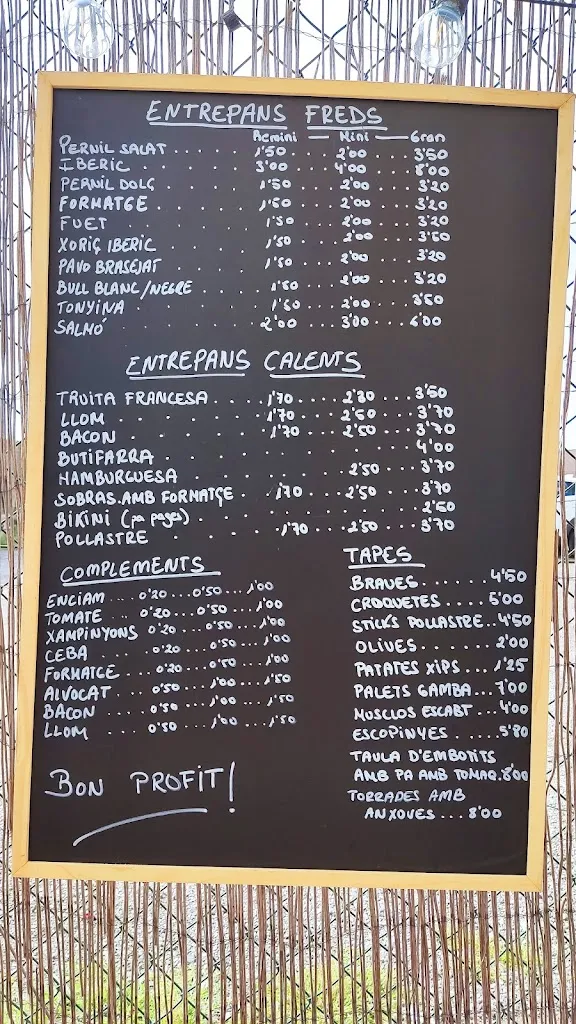 ENTREPANS FREDS
Acmini — Mini — Gran
PERNIL SALAT ..... 1'50 ... 2'00 ... 3'50
IBERIC ..... 3'00 ... 4'00 ... 8'00
PERNIL DOLÇ ..... 1'50 ... 2'00 ... 3'20
FORMATGE ..... 1'50 ... 2'00 ... 3'20
FUET ..... 1'50 ... 2'00 ... 3'20
XORIÇ IBERIC ..... 1'50 ... 2'00 ... 3'50
PAVO BRASEJAT ..... 1'50 ... 2'00 ... 3'20
BULL BLANC/NEGRE ..... 1'50 ... 2'00 ... 3'20
TONYINA ..... 1'50 ... 2'00 ... 3'50
SALMÓ ..... 2'00 ... 3'00 ... 6'00
ENTREPANS CALENTS
TRUITA FRANCESA .... 1'70 ... 2'30 ... 3'50
LLOM ..... 1'70 ... 2'50 ... 3'70
BACON ..... 1'70 ... 2'50 ... 3'70
BUTIFARRA ..... 4'00
HAMBURGUESA 2'50 ... 3'70
SOBRAS.AMB FORMATGE . 1'70 ... 2'50 ... 3'70
BIKINI (pa pages) ..... 2'60
POLLASTRE ... 1'70 ... 2'50 ... 3'70
COMPLEMENTS
ENCIAM ... 0'20 ... 0'50 ... 1'00
TOMATE ... 0'20 ... 0'50 ... 1'00
XAMPINYONS 0'20 ... 0'50 ... 1'00
CEBA ... 0'20 ... 0'50 ... 1'00
FORMATGE ... 0'20 ... 0'50 ... 1'00
ALVOCAT ... 0'50 ... 1'00 ... 1'50
BACON ... 0'50 ... 1'00 ... 1'50
LLOM ... 0'50 ... 1'00 ... 1'50
BON PROFIT!
TAPES
BRAVES ...... 4'50
CROQUETES .... 5'00
STIKS POLLASTRE .. 4'50
OLIVES ...... 2'00
PATATES XIPS ... 1'25
PALETS GAMBA ... 7'00
MUSCLOS ESCABT ... 4'00
ESCOPINYES .... 5'80
TAULA D'EMBOTITS
AMB PA AMB TOMAQ. 8'00
TORRADES AMB
ANXOVES ... 8'00